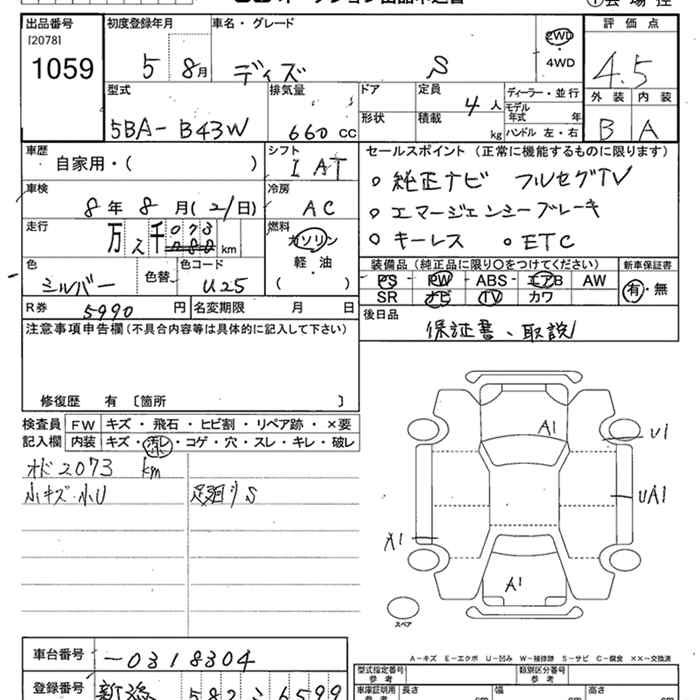 出品番号 初度登録年月 車名・グレード ㋑会場控
[2078] 2WD 評価点
1059 5 8月 デイズ S 4WD 4.5
型式 排気量 ドア 定員 4人 ディーラー・並行 外装 内装
モデル年式 年
5BA-B43W 660cc 形状 積載 kg ハンドル 左・右 B A
車歴 シフト セールスポイント (正常に機能するものに限ります)
自家用・( ) I AT ○ 純正ナビ フルセグTV
車検 冷房
8年8月(21日) AC ○ エマージェンシーブレーキ
走行 燃料
万 2千 073 km ガソリン ○ キーレス ○ ETC
軽・油
色 色替 色コード ( ) 装備品 (純正品に限り○をつけてください) 新車保証書
シルバー U25 PS PW ABS エアB AW 有・無
SR ナビ TV カワ
R券 5990円 名変期限 月 日 後日品
注意事項申告欄(不具合内容等は具体的に記入して下さい) 保証書、取説
修復歴 有 〔箇所 〕
検査員 FW キズ・飛石・ヒビ割・リペア跡・×要 A1
記入欄 内装 キズ・汚レ・コゲ・穴・スレ・キレ・破レ U1
オド2073 km
小キズ・小U 足廻りS UA1
A1
A1
スペア
車台番号 -0318304 A-キズ E-エクボ U-凹み W-補修跡 S-サビ C-腐食 ××-交換済
型式指定番号 参考 類別区分番号 参考
登録番号 新潟 582 6599 車庫証明用 参考 長さ cm 幅 cm 高さ cm